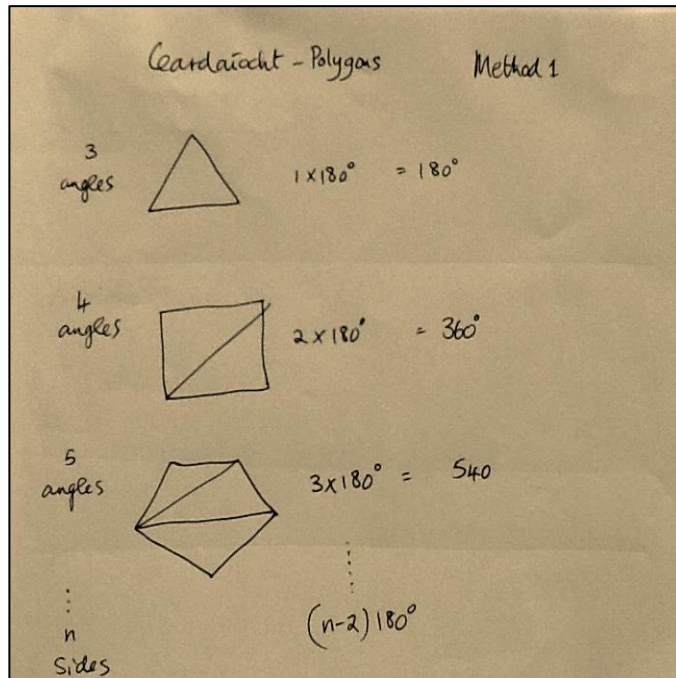 Ceardaíocht - Polygons Method 1
3 angles 1 x 180° = 180°
4 angles 2 x 180° = 360°
5 angles 3 x 180° = 540
⋮ ⋮
n sides (n-2) 180°